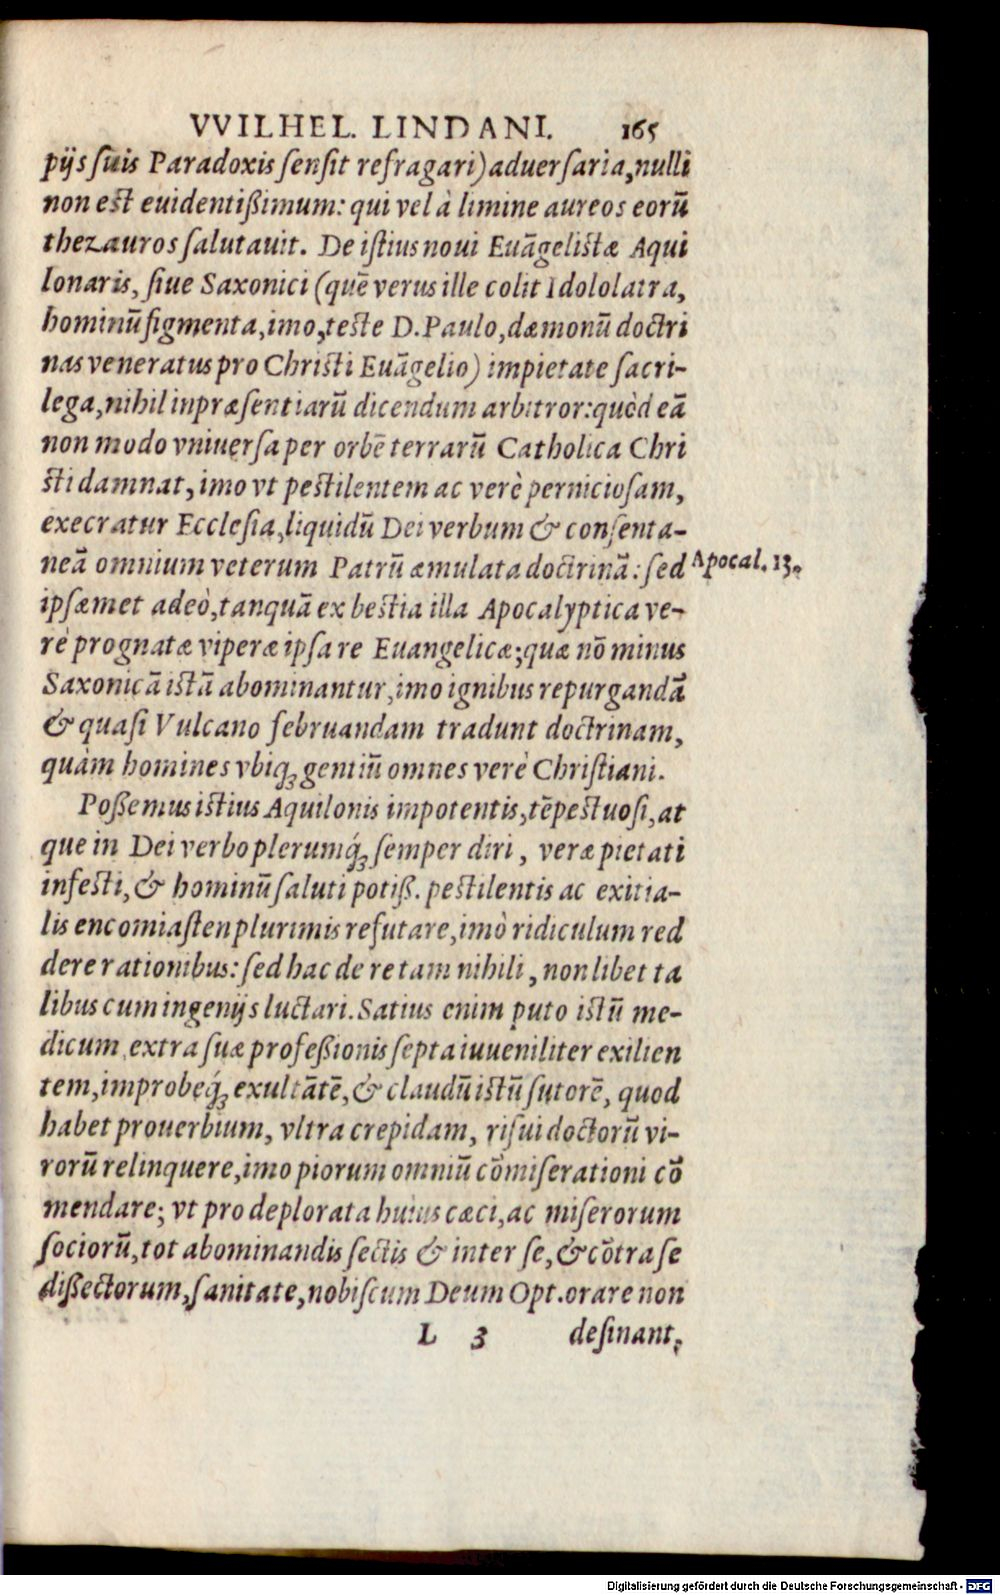 VVILHEL. LINDANI. 165
pijs suis Paradoxis sensit refragari) aduersaria, nulli
non est euidentißimum: qui vel à limine aureos eorū
thezauros salutauit. De istius noui Euãgelistæ Aqui
lonaris, siue Saxonici (quē verus ille colit Idololatra,
hominū figmenta, imo, teste D. Paulo, dæmonū doctri
nas veneratus pro Christi Euãgelio) impietate sacri-
lega, nihil inpræsentiarū dicendum arbitror: quòd eã
non modo vniuersa per orbē terrarū Catholica Chri
sti damnat, imo vt pestilentem ac verè perniciosam,
execratur Ecclesia, liquidū Dei verbum & consenta-
neã omnium veterum Patrū æmulata doctrinã: sed
Apocal. 13.
ipsæmet adeò, tanquã ex bestia illa Apocalyptica ve-
rè prognatæ viperæ ipsa re Euangelicæ; quæ nō minus
Saxonicã istã abominantur, imo ignibus repurgandã
& quasi Vulcano februandam tradunt doctrinam,
quàm homines vbiq; gentiū omnes verè Christiani.
Poßemus istius Aquilonis impotentis, tēpestuosi, at
que in Dei verbo plerumq́; semper diri, veræ pietati
infesti, & hominū saluti potiß. pestilentis ac exitia-
lis encomiasten plurimis refutare, imò ridiculum red
dere rationibus: sed hac de re tam nihili, non libet ta
libus cum ingenijs luctari. Satius enim puto istū me-
dicum, extra suæ profeßionis septa iuueniliter exilien
tem, improbeq́; exultãtē, & claudū istū sutorē, quod
habet prouerbium, vltra crepidam, risui doctorū vi-
rorū relinquere, imo piorum omniū cōmiserationi cō
mendare; vt pro deplorata huius cæci, ac miserorum
sociorū, tot abominandis sectis & inter se, & cōtra se
dißectorum, sanitate, nobiscum Deum Opt. orare non
L 3 desinant,
Digitalisierung gefördert durch die Deutsche Forschungsgemeinschaft - DFG